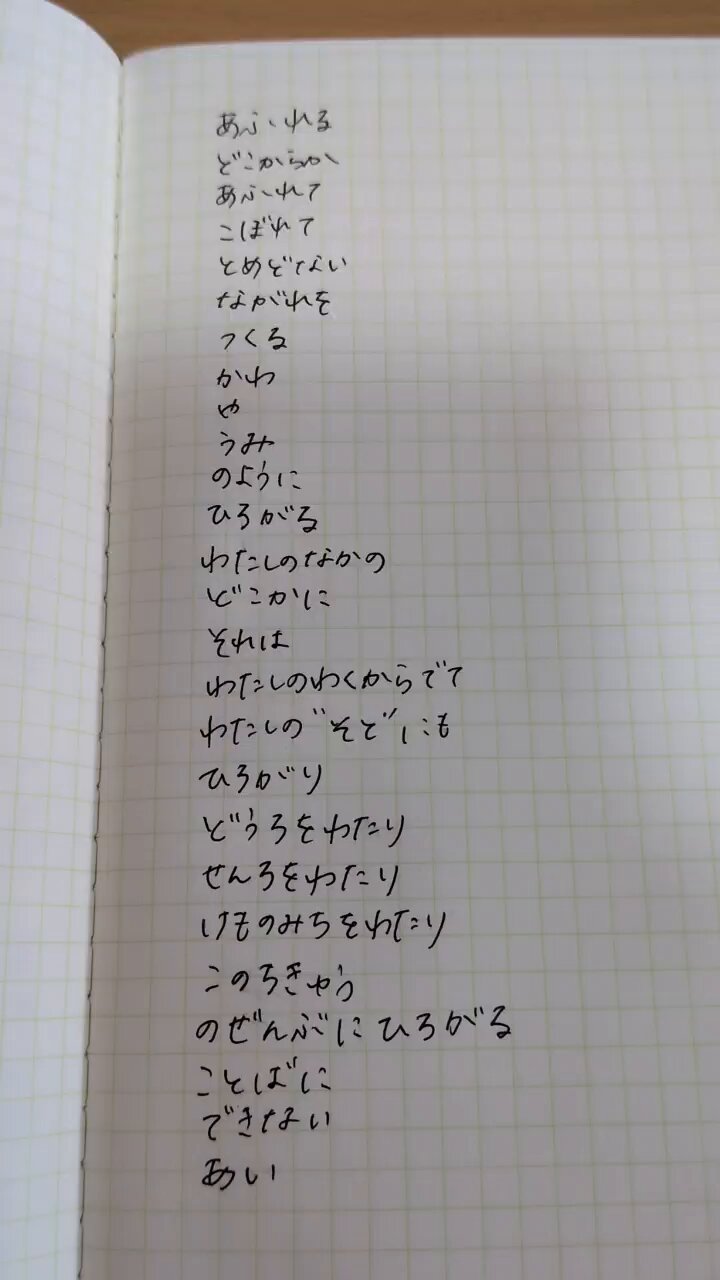 あふれる
どこからか
あふれて
こぼれて
とめどない
ながれを
つくる
かわ
や
うみ
のように
ひろがる
わたしのなかの
どこかに
それは
わたしのわくからでて
わたしの"そと"にも
ひろがり
どうろをわたり
せんろをわたり
けものみちをわたり
このちきゅう
のぜんぶにひろがる
ことばに
できない
あい